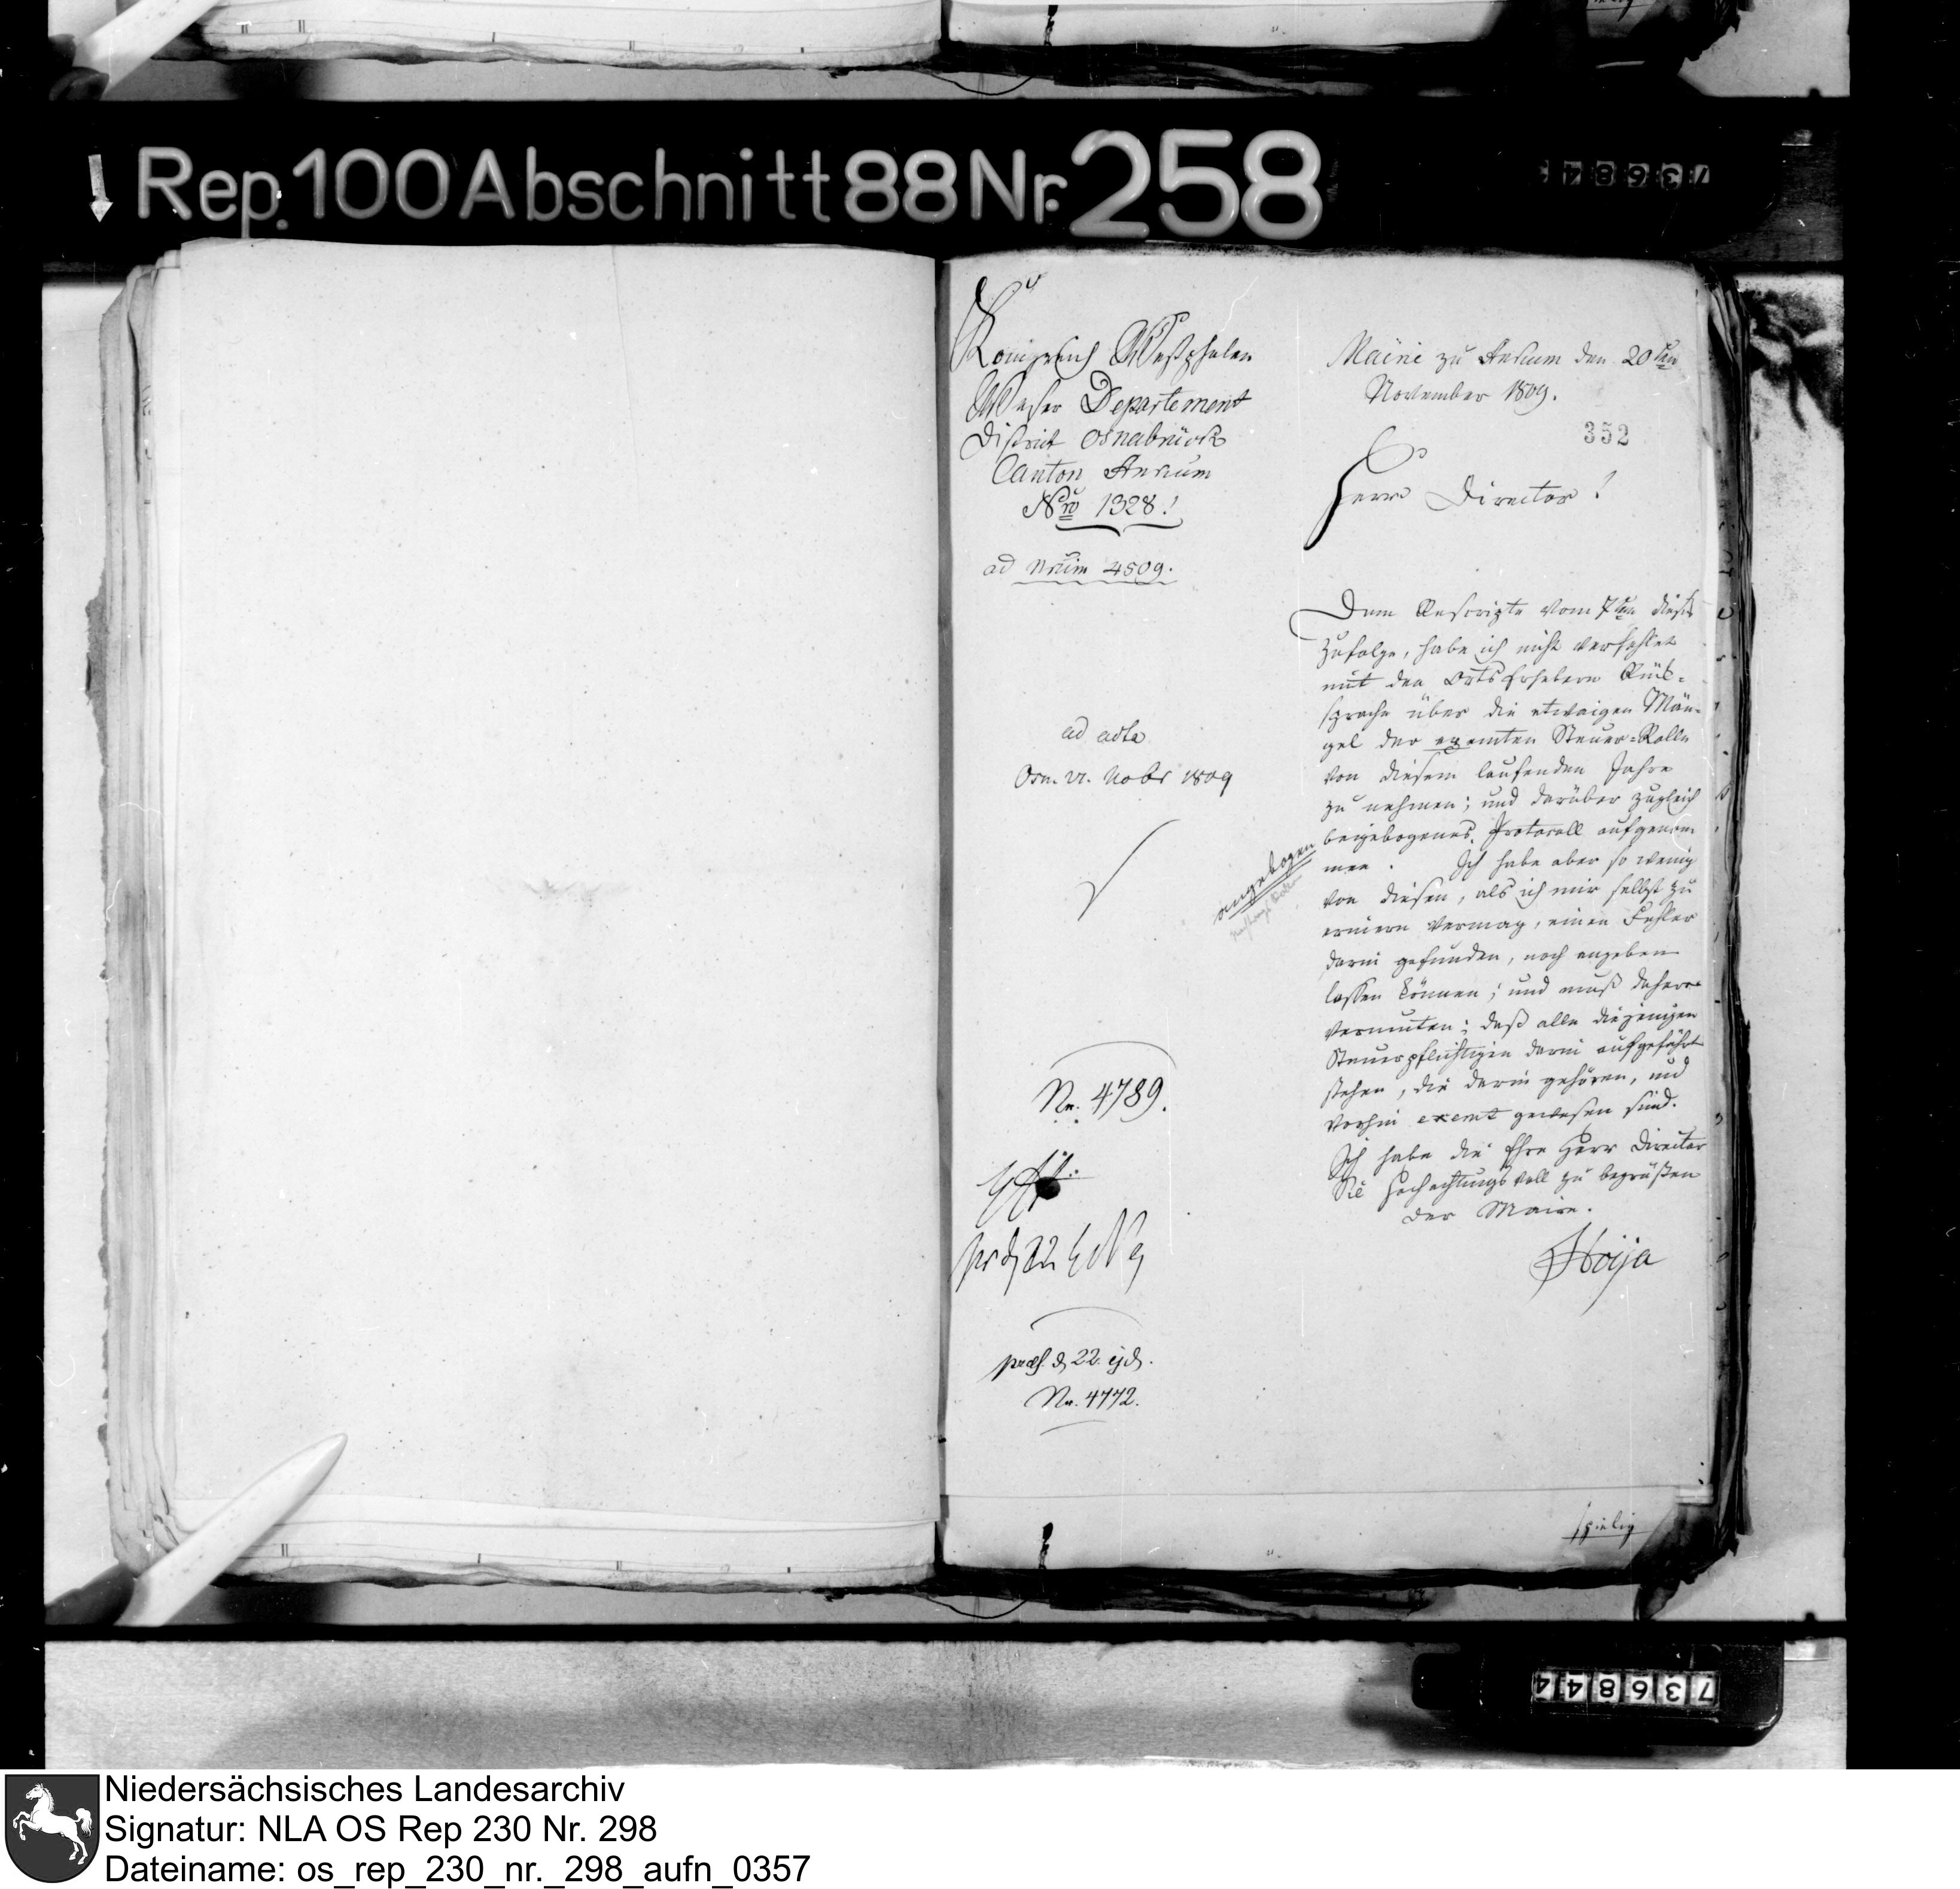 Rep. 100 Abschnitt 88 Nr. 258
Königreich Westphalen
Weser Departement
District Osnabrück
Canton Ankum
Nro 1328!
ad Nrum 4509.
ad acta
Osn. 22. Nobr 1809
angebogen
Nr. 4789.
praes. d. 22. ejd.
Nr. 4772.
Mairie zu Ankum den 20ten
November 1809.
352
Herr Director!
Dem Rescripte vom 7ten dieses
zufolge, habe ich nicht verfehlet
mit den Ortserhebern Rück=
sprache über die etwaigen Män=
gel der exemten Steuer=Rolle
von diesem laufenden Jahre
zu nehmen; und darüber zugleich
beigebogenes Protocoll aufgenom
men. Ich habe aber so wenig
von diesen, als ich mir selbst zu
erinern vermag, einen Fehler
darin gefunden, noch angeben
lassen können; und muß dahero
vermuten; daß alle diejenigen
Steuerpflichtigen darin aufgeführt
stehen, die darin gehören, und
vorhin exemt gewesen sind.
Ich habe die Ehre Herr Director
Sie hochachtungsvoll zu begrüßen
Der Maire.
Hoija
736844
Niedersächsisches Landesarchiv
Signatur: NLA OS Rep 230 Nr. 298
Dateiname: os_rep_230_nr._298_aufn_0357